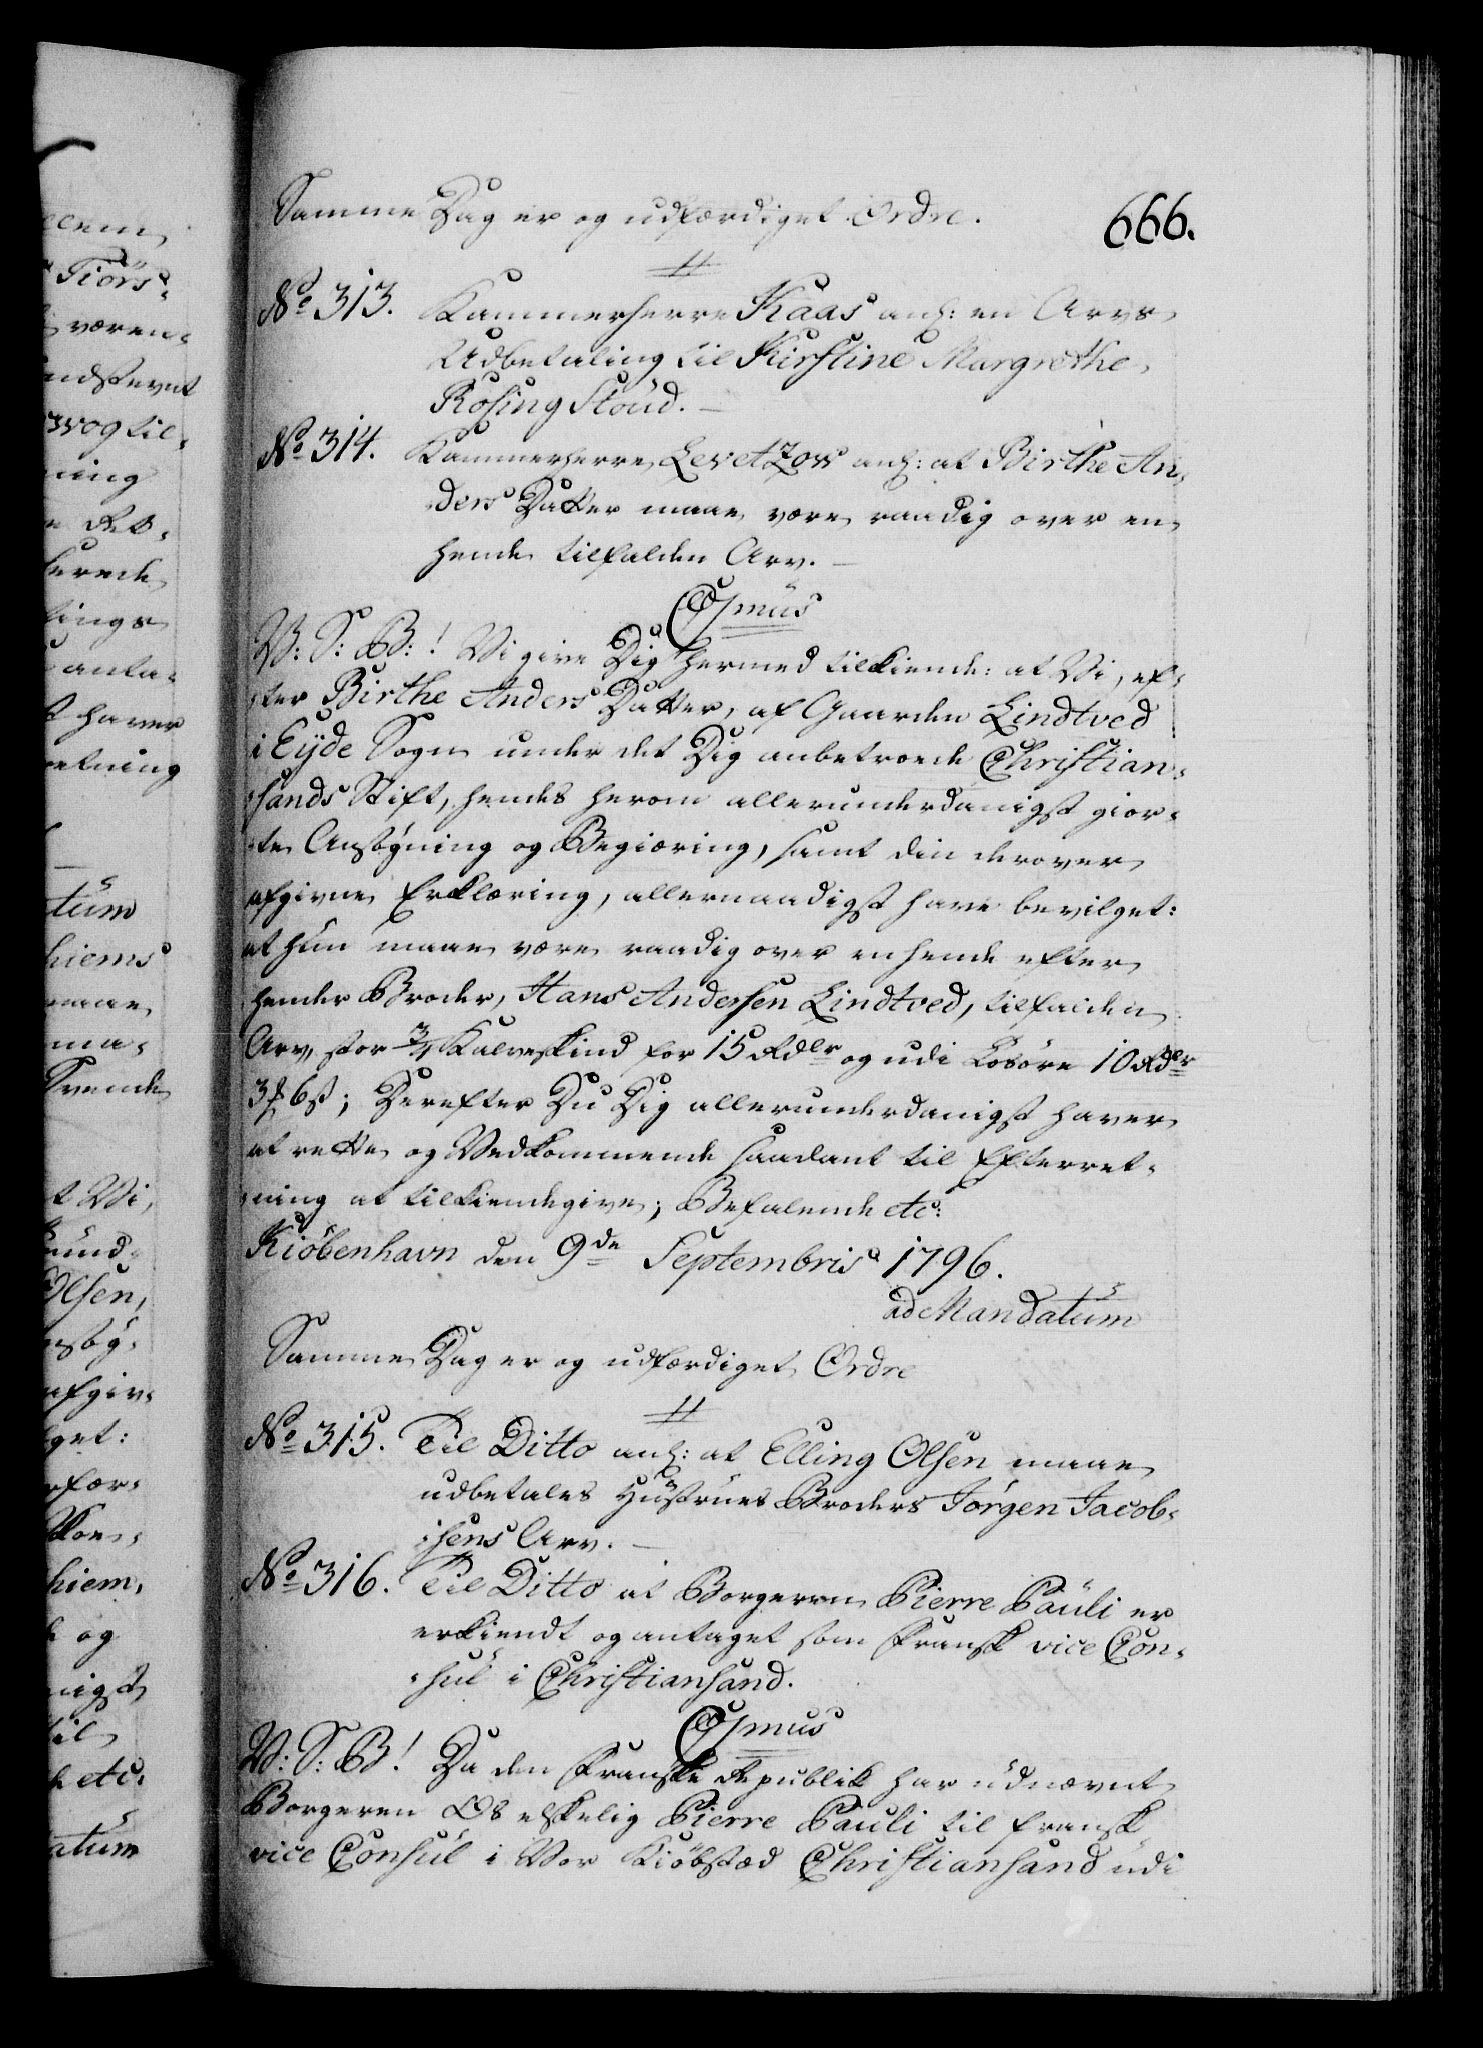 Samme Dag er og udfærdiget Ordre.
666.
No 313. Kammerherre Kaas anl: en Arvs
Udbetaling til Kirstine Margrethe
Rosing Stoud.
No 314. Kammerherre Levetzow anl: at Birthe An-
ders Datter maae være raadig over en
hende tilfalden Arv.
C7mus
V: S: B:! Vi give Dig hermed tilkiende: at Vi, ef-
ter Birthe Anders Datter, af Gaarden Lindtved
i Eyde Sogn under det Dig anbetroede Christian-
sands Stift, hendes herom allerunderdanigst gior-
te Ansøgning og Begiæring, samt din derover
afgivne Erklæring, allernaadigst have bevilget:
at hun maae være raadig over en hende efter
hendes Broder, Hans Andersen Lindtved, tilfalden
Arv, stor 3/4 Kalveskind for 15 Rdlr og udi Løsøre 10 Rdlr
3 ₰ 6 ß; Derefter Du Dig allerunderdanigst haver
at rette og Vedkommende saadant til Efterret-
ning at tilkiendegive; Befalende etc:
Kiøbenhavn den 9de Septembris 1796.
ad Mandatum
Samme Dag er og udfærdiget Ordre
No 315. Til Ditto anl: at Elling Olsen maae
udbetales Hustrues Broders Jørgen Jacob-
sens Arv.
No 316. Til Ditto at Borgeren Pierre Pauli er
erkiendt og antaget som Fransk vice Con-
sul i Christiansand.
C7mus
V: S: B! Da den Franske Republik har udnævnt
Borgeren Os elskelig Pierre Pauli til fransk
vice Consul i Vor Kiøbstæd Christiansand udi